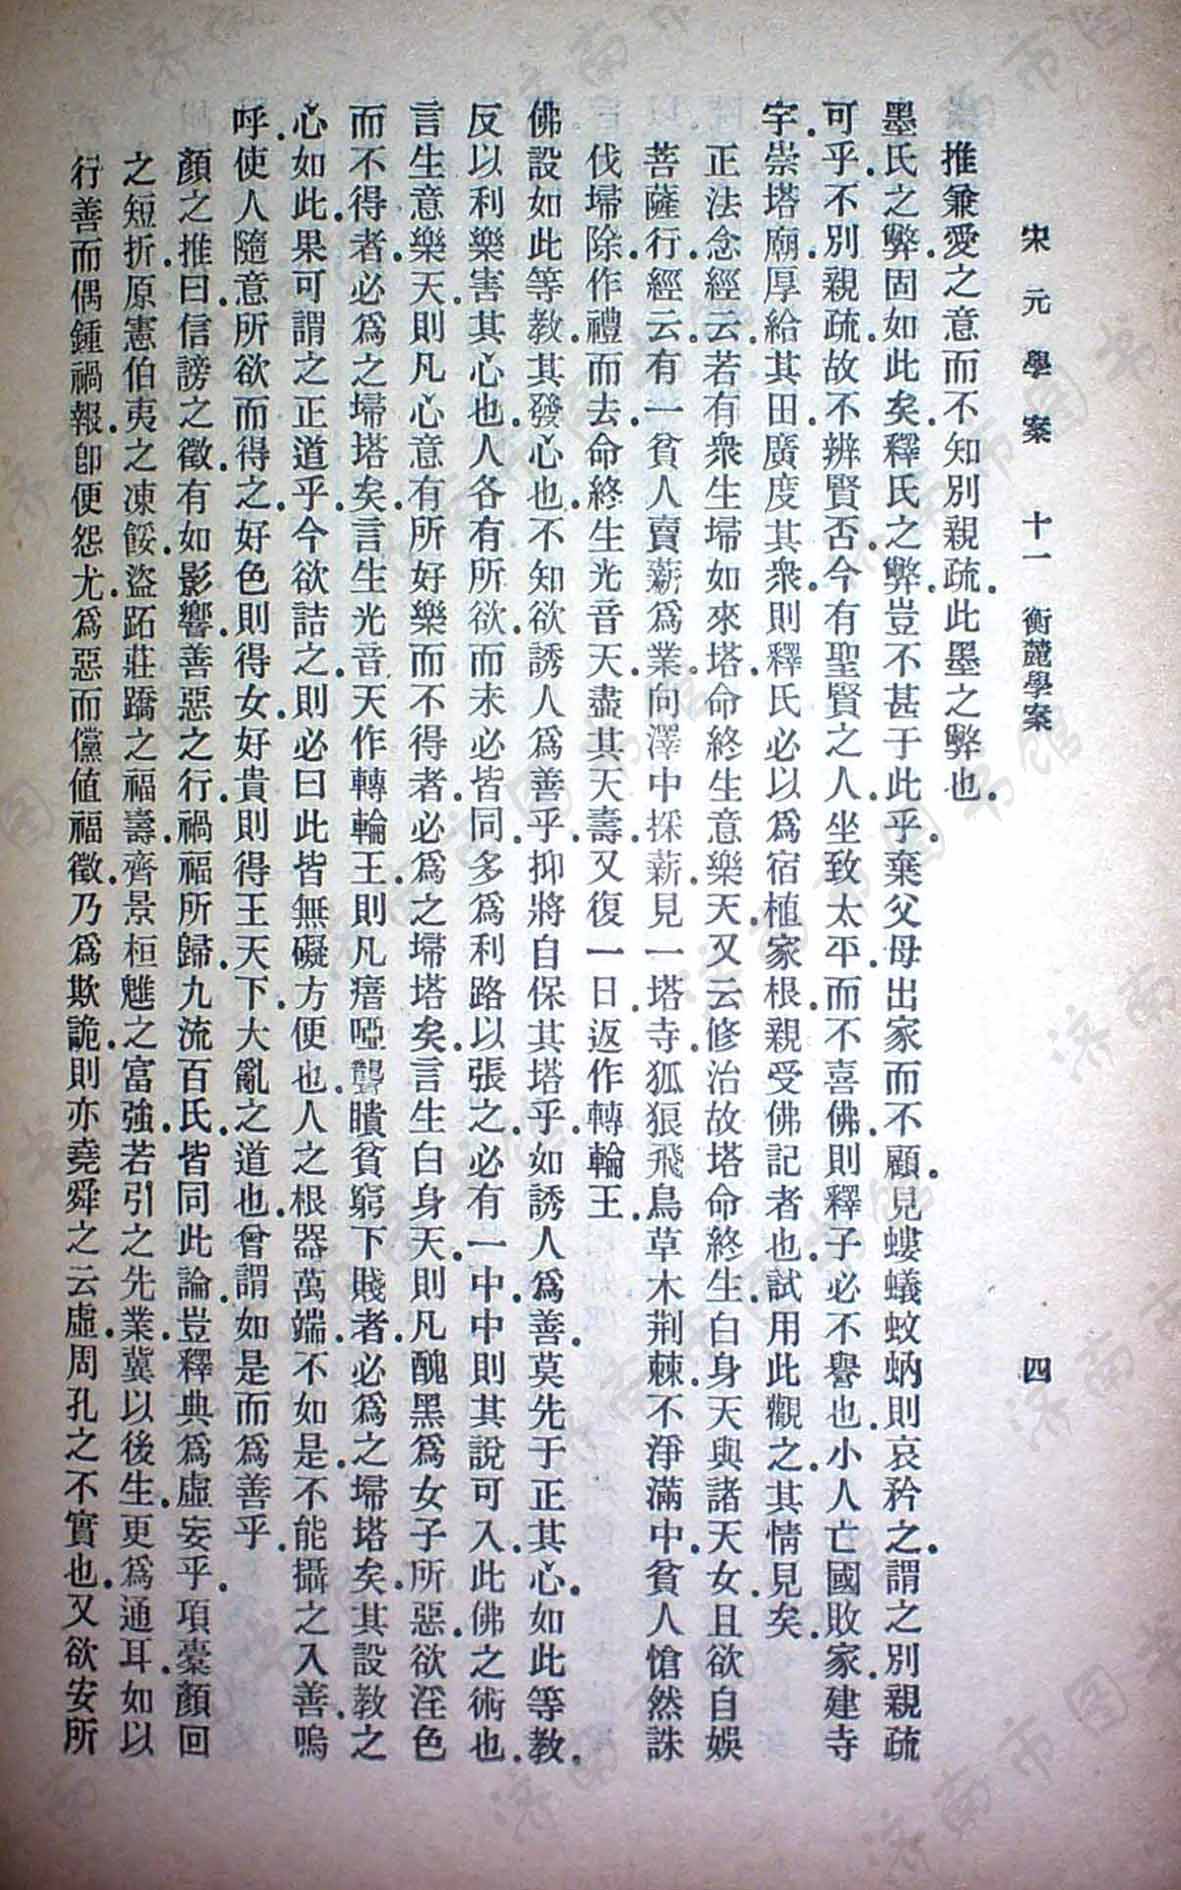 宋元學案 十一 衡麓學案 四
推兼愛之意而不知別親疏.此墨之弊也.
墨氏之弊固如此矣.釋氏之弊.豈不甚于此乎.棄父母出家而不顧.見螻蟻蚊蚋.則哀矜之.謂之別親疏
可乎.不別親疏.故不辨賢否.今有聖賢之人.坐致太平.而不喜佛.則釋子必不譽也.小人亡國敗家.建寺
宇.崇塔廟.厚給其田.廣度其衆.則釋氏必以爲宿植家根.親受佛記者也.試用此觀之.其情見矣.
正法念經云.若有衆生掃如來塔.命終生意樂天.又云修治故塔.命終生白身天.與諸天女.且欲自娛
菩薩行經云.有一貧人賣薪爲業.向澤中採薪.見一塔寺.狐狼飛鳥草木荆棘.不淨滿中.貧人愴然誅
伐掃除.作禮而去.命終生光音天.盡其天壽.又復一日.返作轉輪王.
佛設如此等教.其發心也.不知欲誘人爲善乎.抑將自保其塔乎.如誘人爲善.莫先于正其心.如此等教.
反以利樂害其心也.人各有所欲.而未必皆同.多爲利路以張之.必有一中.中則其說可入.此佛之術也.
言生意樂天.則凡心意有所好樂而不得者.必爲之掃塔矣.言生白身天.則凡醜黑爲女子所惡.欲淫色
而不得者.必爲之掃塔矣.言生光音天作轉輪王.則凡瘖啞聾瞶貧窮下賤者.必爲之掃塔矣.其設教之
心如此.果可謂之正道乎.今欲詰之.則必曰此皆無礙方便也.人之根器萬端.不如是.不能攝之入善.嗚
呼.使人隨意所欲而得之.好色則得女.好貴則得王天下.大亂之道也.曾謂如是而爲善乎.
顏之推曰.信謗之徵.有如影響.善惡之行.禍福所歸.九流百氏.皆同此論.豈釋典爲虛妄乎.項橐顏回
之短折.原憲伯夷之凍餒.盜跖莊蹻之福壽.齊景桓魋之富強.若引之先業.冀以後生.更爲通耳.如以
行善而偶鍾禍報.卽便怨尤.爲惡而儻值福徵.乃爲欺詭.則亦堯舜之云虛.周孔之不實也.又欲安所